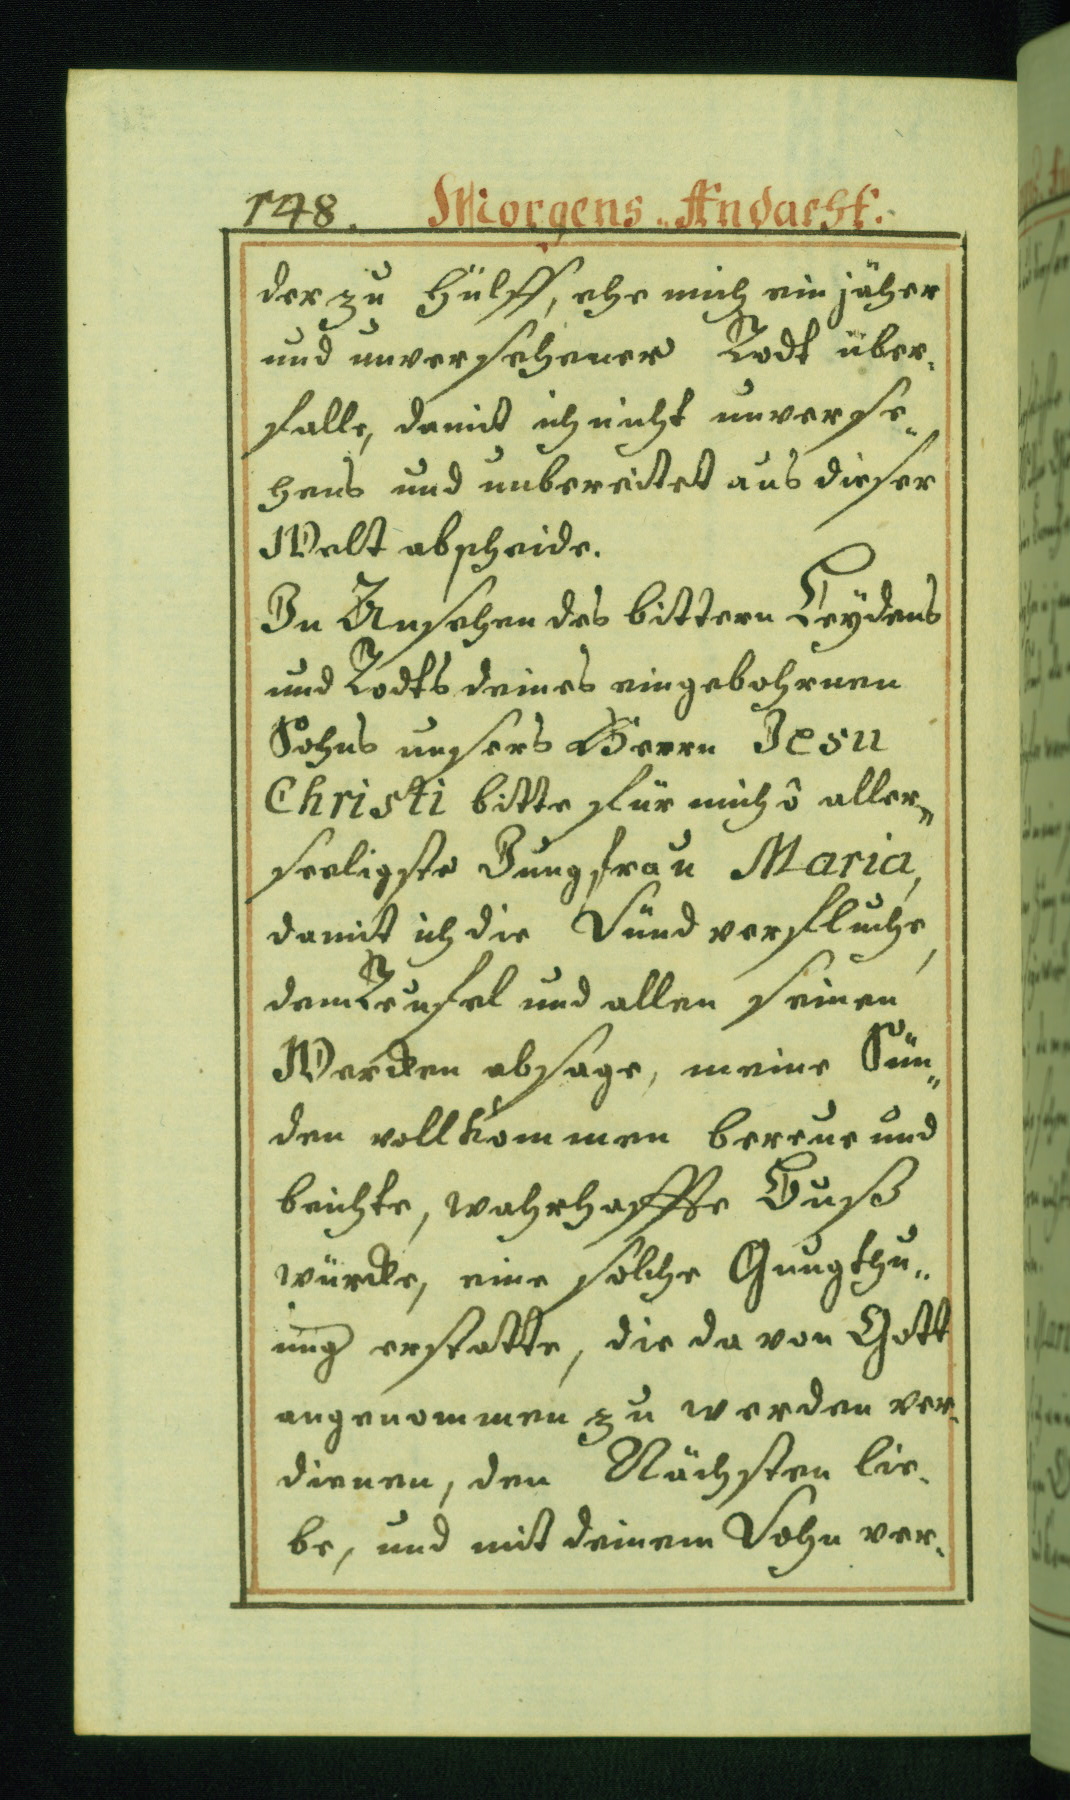 148. Morgens-Andacht.
der zu Hülff, ehe mich ein jäher
und unversehener Todt über-
falle, damit ich nicht unverse-
hens und unbereitet aus dieser
Welt abscheide.
In Ansehen des bittern Leÿdens
und Todts deines eingebohrnen
Sohns unsers Herrn Jesu
Christi bitte für mich ô aller-
seeligste Jungfrau Maria,
damit ich die Sünd verfluche,
dem Teufel und allen seinen
Wercken absage, meine Sün-
den vollkommen bereue und
beichte, wahrhaffte Buß
würcke, eine solche Gnugthu-
ung erstatte, die da von Gott
angenommen zu werden ver-
dienen, den Nächsten lie-
be, und mit deinem Sohn ver-